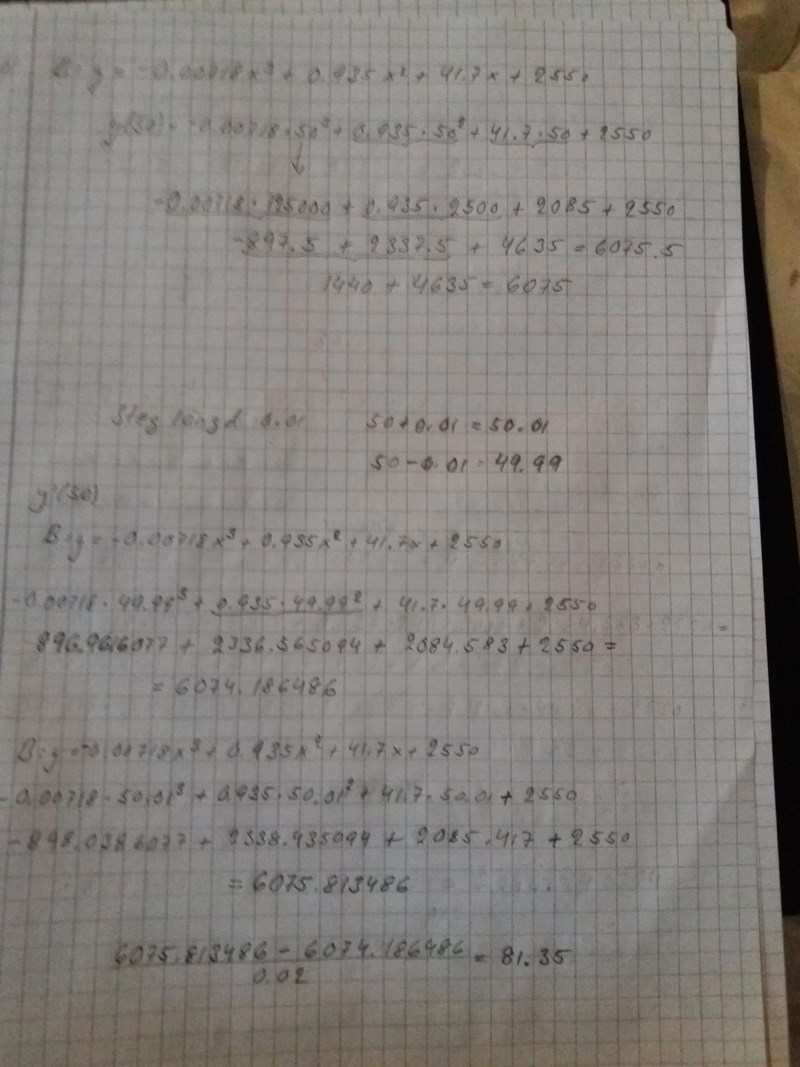 B: y = -0.00718x³ + 0.935x² + 41.7x + 2550
y(50) = -0.00718·50³ + 0.935·50² + 41.7·50 + 2550
↓
-0.00718·125000 + 0.935·2500 + 2085 + 2550
-897.5 + 2337.5 + 4635 = 6075.5
1440 + 4635 = 6075
Steg längd 0.01 50+0.01 = 50.01
50-0.01 = 49.99
y'(50)
B: y = -0.00718x³ + 0.935x² + 41.7x + 2550
-0.00718·49.99³ + 0.935·49.99² + 41.7·49.99 + 2550
896.9616077 + 2336.565094 + 2084.583 + 2550 =
= 6074.186486
B: y = -0.00718x³ + 0.935x² + 41.7x + 2550
-0.00718·50.01³ + 0.935·50.01² + 41.7·50.01 + 2550
-898.0386077 + 2338.435094 + 2085.417 + 2550
= 6075.813486
6075.813486 - 6074.186486 = 81.35
0.02